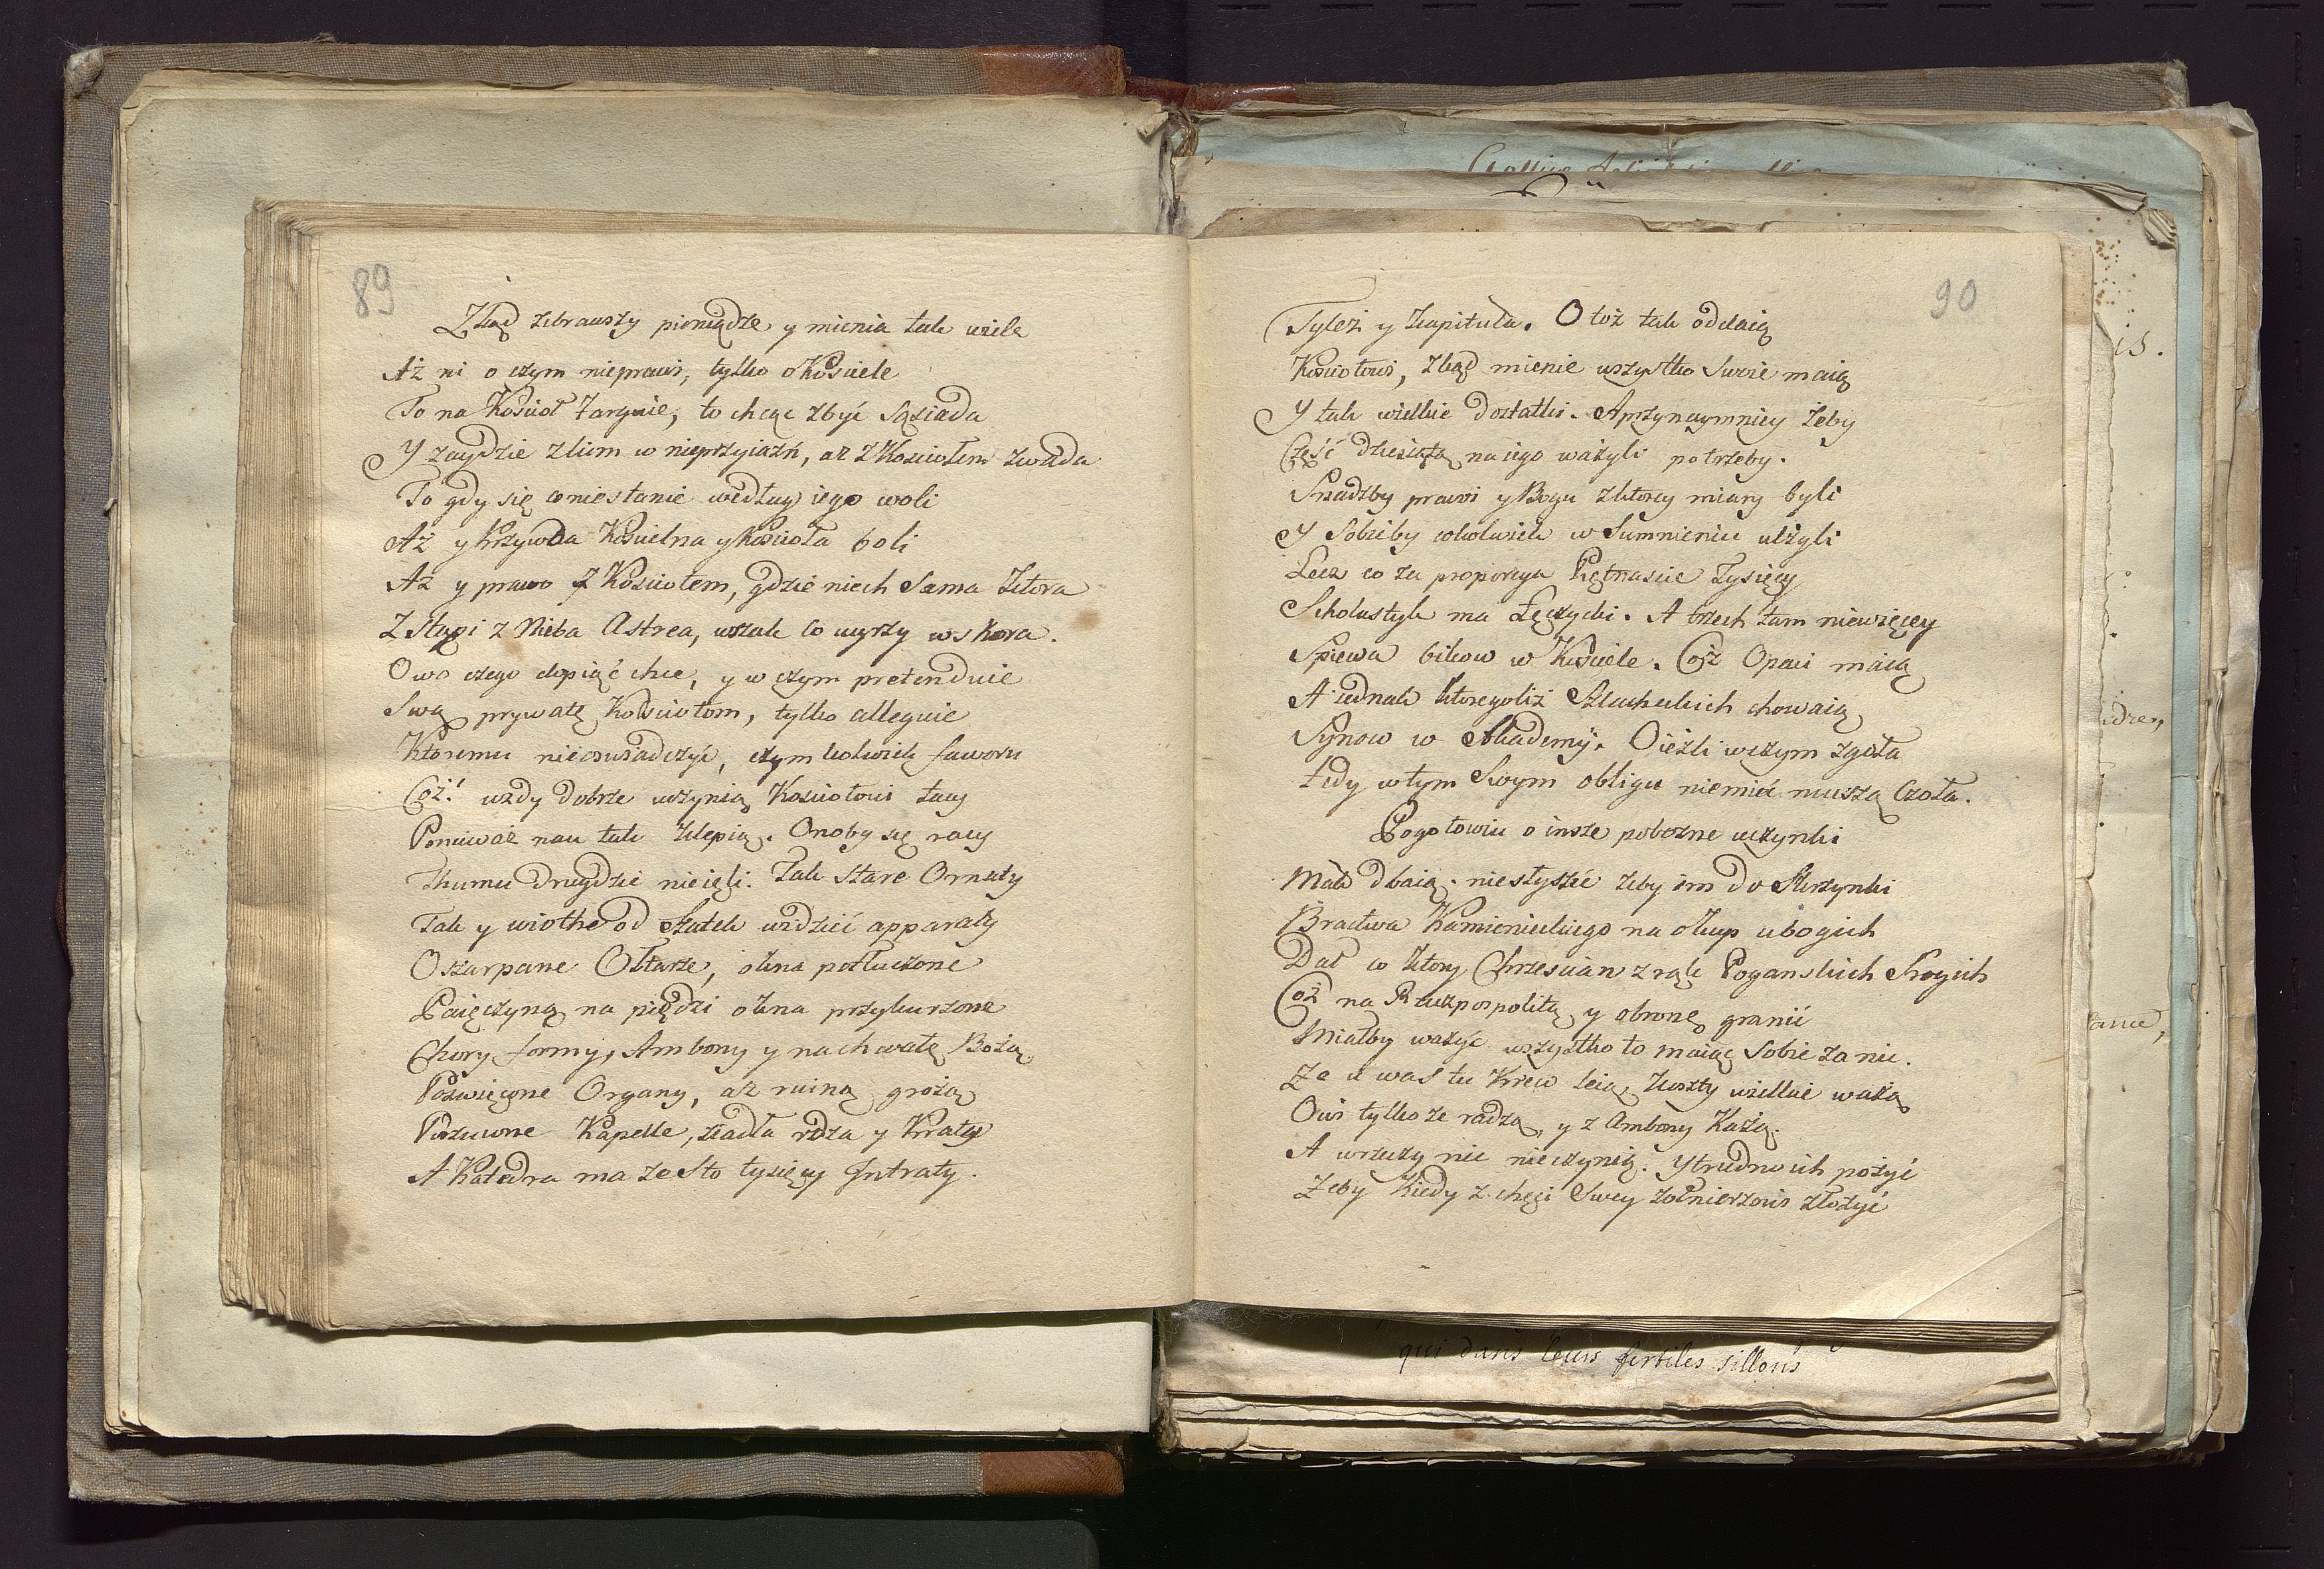 89
Ztąd zebrawszy pieniądze y mienia tak wiele
Aż ni o czym nieprawi, tylko o Kościele
To na Kościoł Targuie, to chcąc zbyć Sąsiada
Y zaydzie z kim w nieprzyiaźń, aż z Kościołem zwada
To gdy się co niestanie według iego woli
Aż y krzywda Kościelna y Kościoła boli
Aż y prawo z Kościołem, gdzie niech Sama ktora
Zstąpi z Nieba Astrea, wszak co uyrzy wskora.
Owo czego dopiąć chce, y w czym pretenduie
Swą prywatę Kościołom, tylko alleguie
Ktoremu nieoswiadczyć, czym kolwiek faworu
Coż! wzdy dobrze uczynią Kościołowi tacy
Ponieważ nan tak klepią. Onoby się racy
Thumu drugdzie nieięli. Tak stare Ornaty
Tak y wiothe od Szatek widzieć apparaty
Oszarpane Ołtarze, okna potłuczone
Paięczyną na piędzi okna przykurzone
Chory formy, Ambony y na chwałę Bożą
Poswięcone Organy, aż ruiną grożą
Pozuwne Kapelle, ziadła rdza y Kraty
A Katedra ma ze Sto tysięcy Intraty.
90
Tyleż y Kapituła. O toż tak oddaią
Kościołowi, zkąd mienie wszystko Swoie maią
Y tak wielkie dostatki. A przynaymniey żeby
Część dziesiątą na iego ważyli potrzeby.
Snadźby prawi y Bogu z ktorey miary byli
Y Sobieby cokolwiek w Sumnieniu ulżyli
Lecz co za proporcya Piętnascie Tysięcy
Scholastyk ma Łęczycki. A trzech tam niewięcey
Spiewa bikow w Kościele. Coż Opaci maią
A iednak ktoregoliż Szlacheckich chowaią
Synow w Akademij. O ieżli w czym zgoła
Tedy w tym Swym obligu niemieć muszą Czoła.
Pogotowiu o insze pobożne uczynki
Mało dbaią. niesłyszeć żeby im do Skrzynki
Bractwa Kamienieckiego na okup ubogich
Dał co ktory Chrzescian z rąk Poganskich Srogich
Coż na Rzeczpospolitą y obronę granic
Miałby ważyć wszystko to maiąc Sobie za nic.
Że u was tu Krew leią, Koszty wielkie ważą
Owi tylko ze radzą, y z Ambony Każą.
A wrzeczy nic nieczynią. Y trudno ich pożyć
Żeby Kiedy z chęci Swey żołnierzowi złożyć
qui dans leurs fertiles sillons